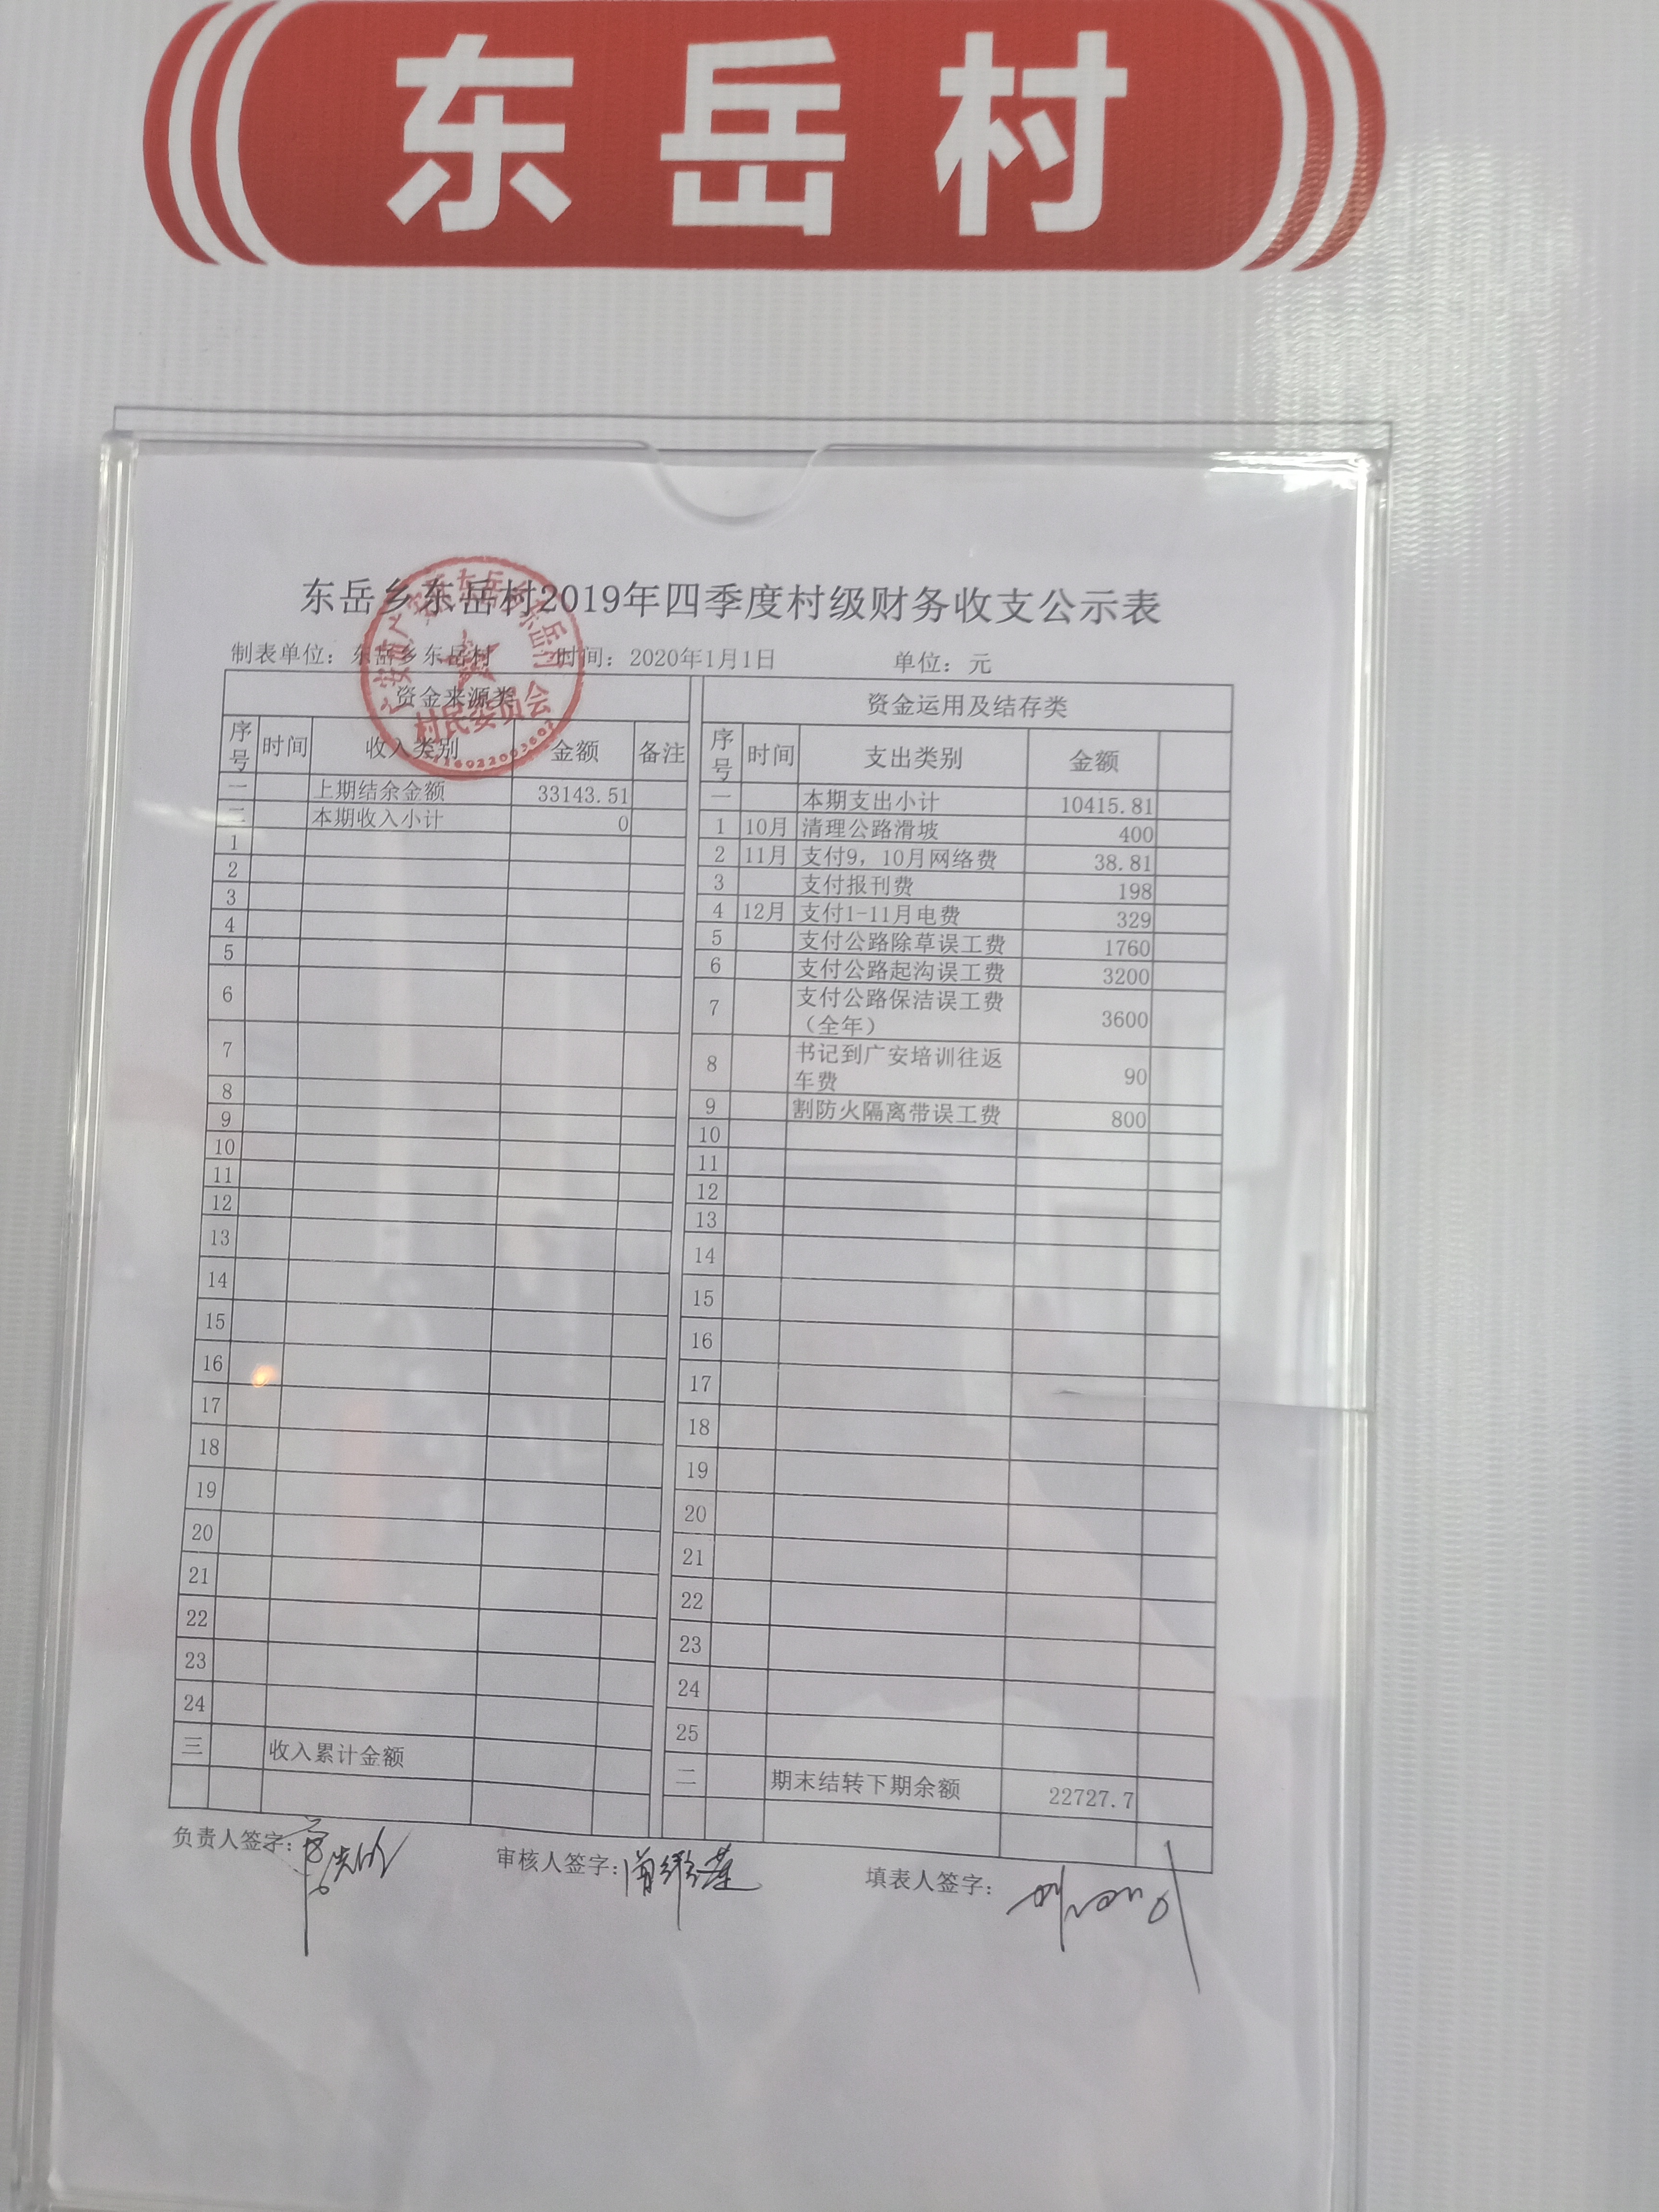 东岳村
东岳乡东岳村2019年四季度村级财务收支公示表
制表单位：东岳乡东岳村 时间：2020年1月1日 单位：元
资金来源类 资金运用及结存类
序号 时间 收入类别 金额 备注 序号 时间 支出类别 金额
一 上期结余金额 33143.51 一 本期支出小计 10415.81
二 本期收入小计 0 1 10月 清理公路滑坡 400
1 2 11月 支付9，10月网络费 38.81
2 3 支付报刊费 198
3 4 12月 支付1-11月电费 329
4 5 支付公路除草误工费 1760
5 6 支付公路起沟误工费 3200
6 7 支付公路保洁误工费（全年） 3600
7 8 书记到广安培训往返车费 90
8 9 割防火隔离带误工费 800
9 10
10 11
11 12
12 13
13 14
14 15
15 16
16 17
17 18
18 19
19 20
20 21
21 22
22 23
23 24
24 25
三 收入累计金额 二 期末结转下期余额 22727.7
负责人签字： 审核人签字： 填表人签字：
村民委员会